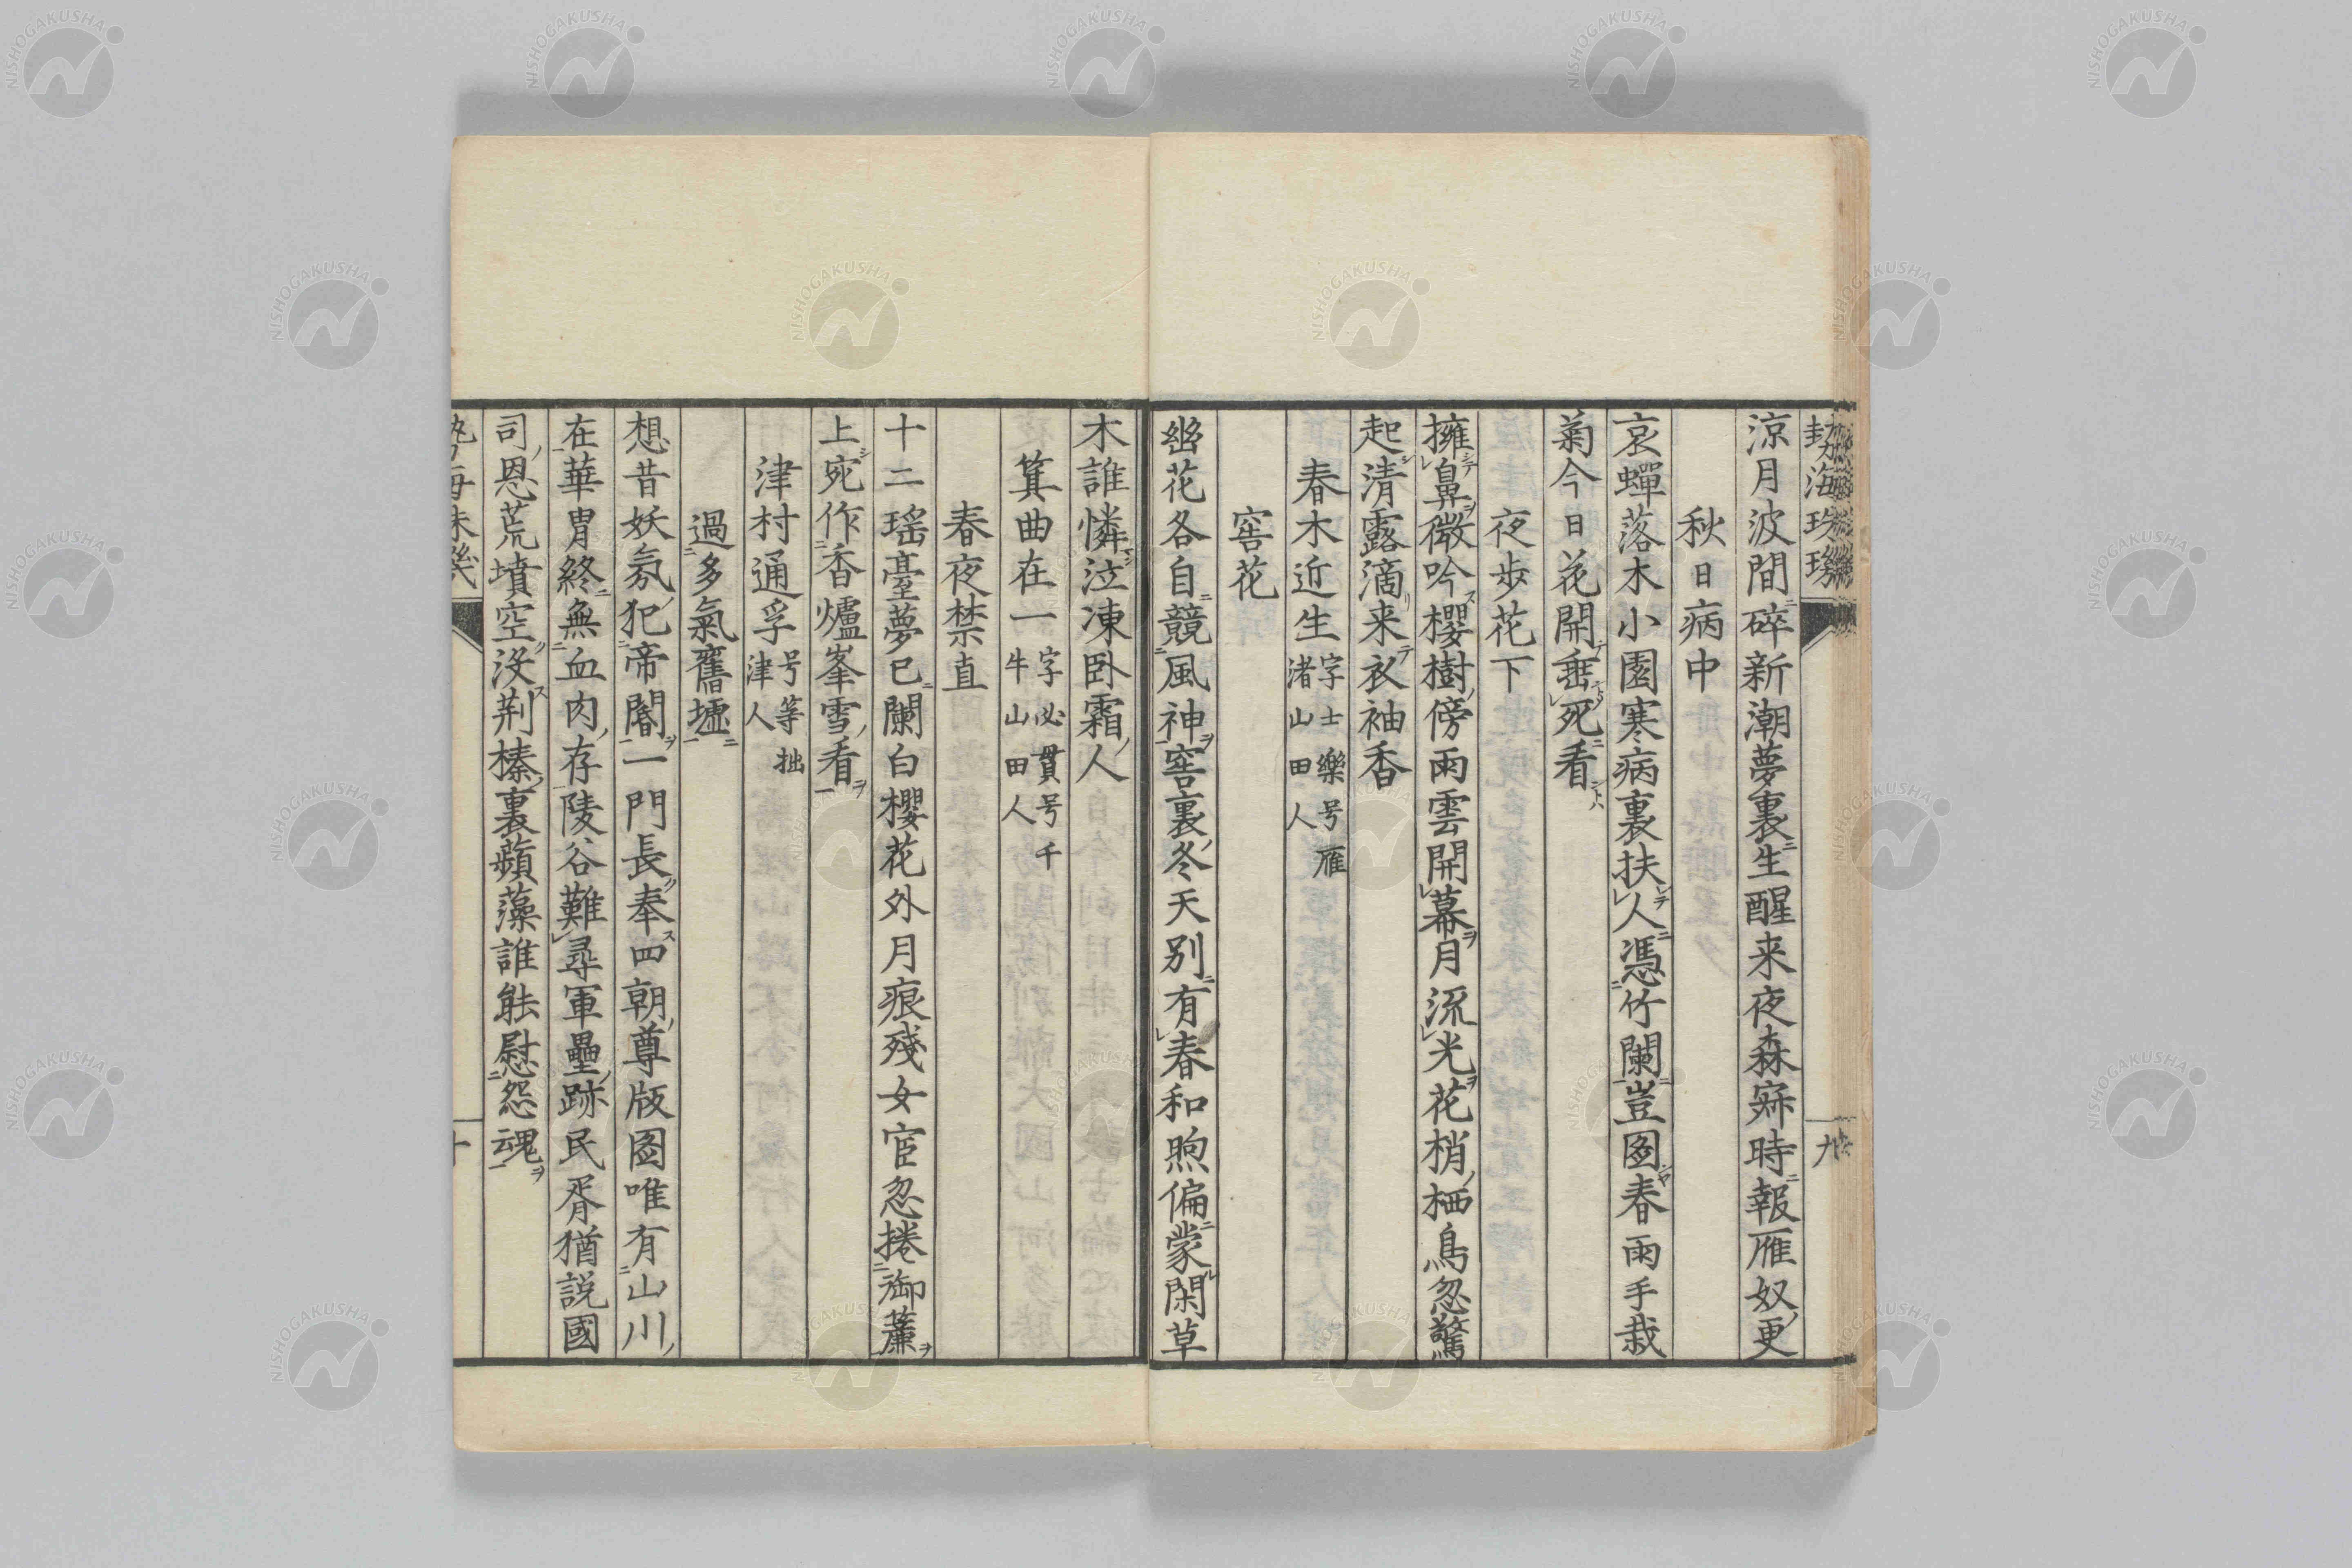 涼月波間碎新潮夢裏生醒来夜森寂時報雁奴更
秋日病中
哀蟬落木小園寒病裏扶人憑竹闌豈圖春雨手栽
菊今日花開垂死看
夜歩花下
擁鼻微吟櫻樹傍雨雲開幕月流光花梢栖鳥忽驚
起清露滴来衣袖香
春木近生字士樂号雁渚山田人
窖花
幽花各自競風神窖裏冬天別有春和煦偏蒙閑草
木誰憐泣凍卧霜人
箕曲在一字必貫号千牛山田人
春夜禁直
十二瑤臺夢已闌白櫻花外月痕殘女官忽捲御簾
上宛作香爐峯雪看
津村通孚号等拙津人
過多氣舊墟
想昔妖氛犯帝閽一門長奉四朝尊版圖唯有山川
在華胄終無血肉存陵谷難尋軍壘跡民胥猶説國
司恩荒墳空没荆榛裏蘋藻誰能慰怨魂
九
十
NISHOGAKUSHA